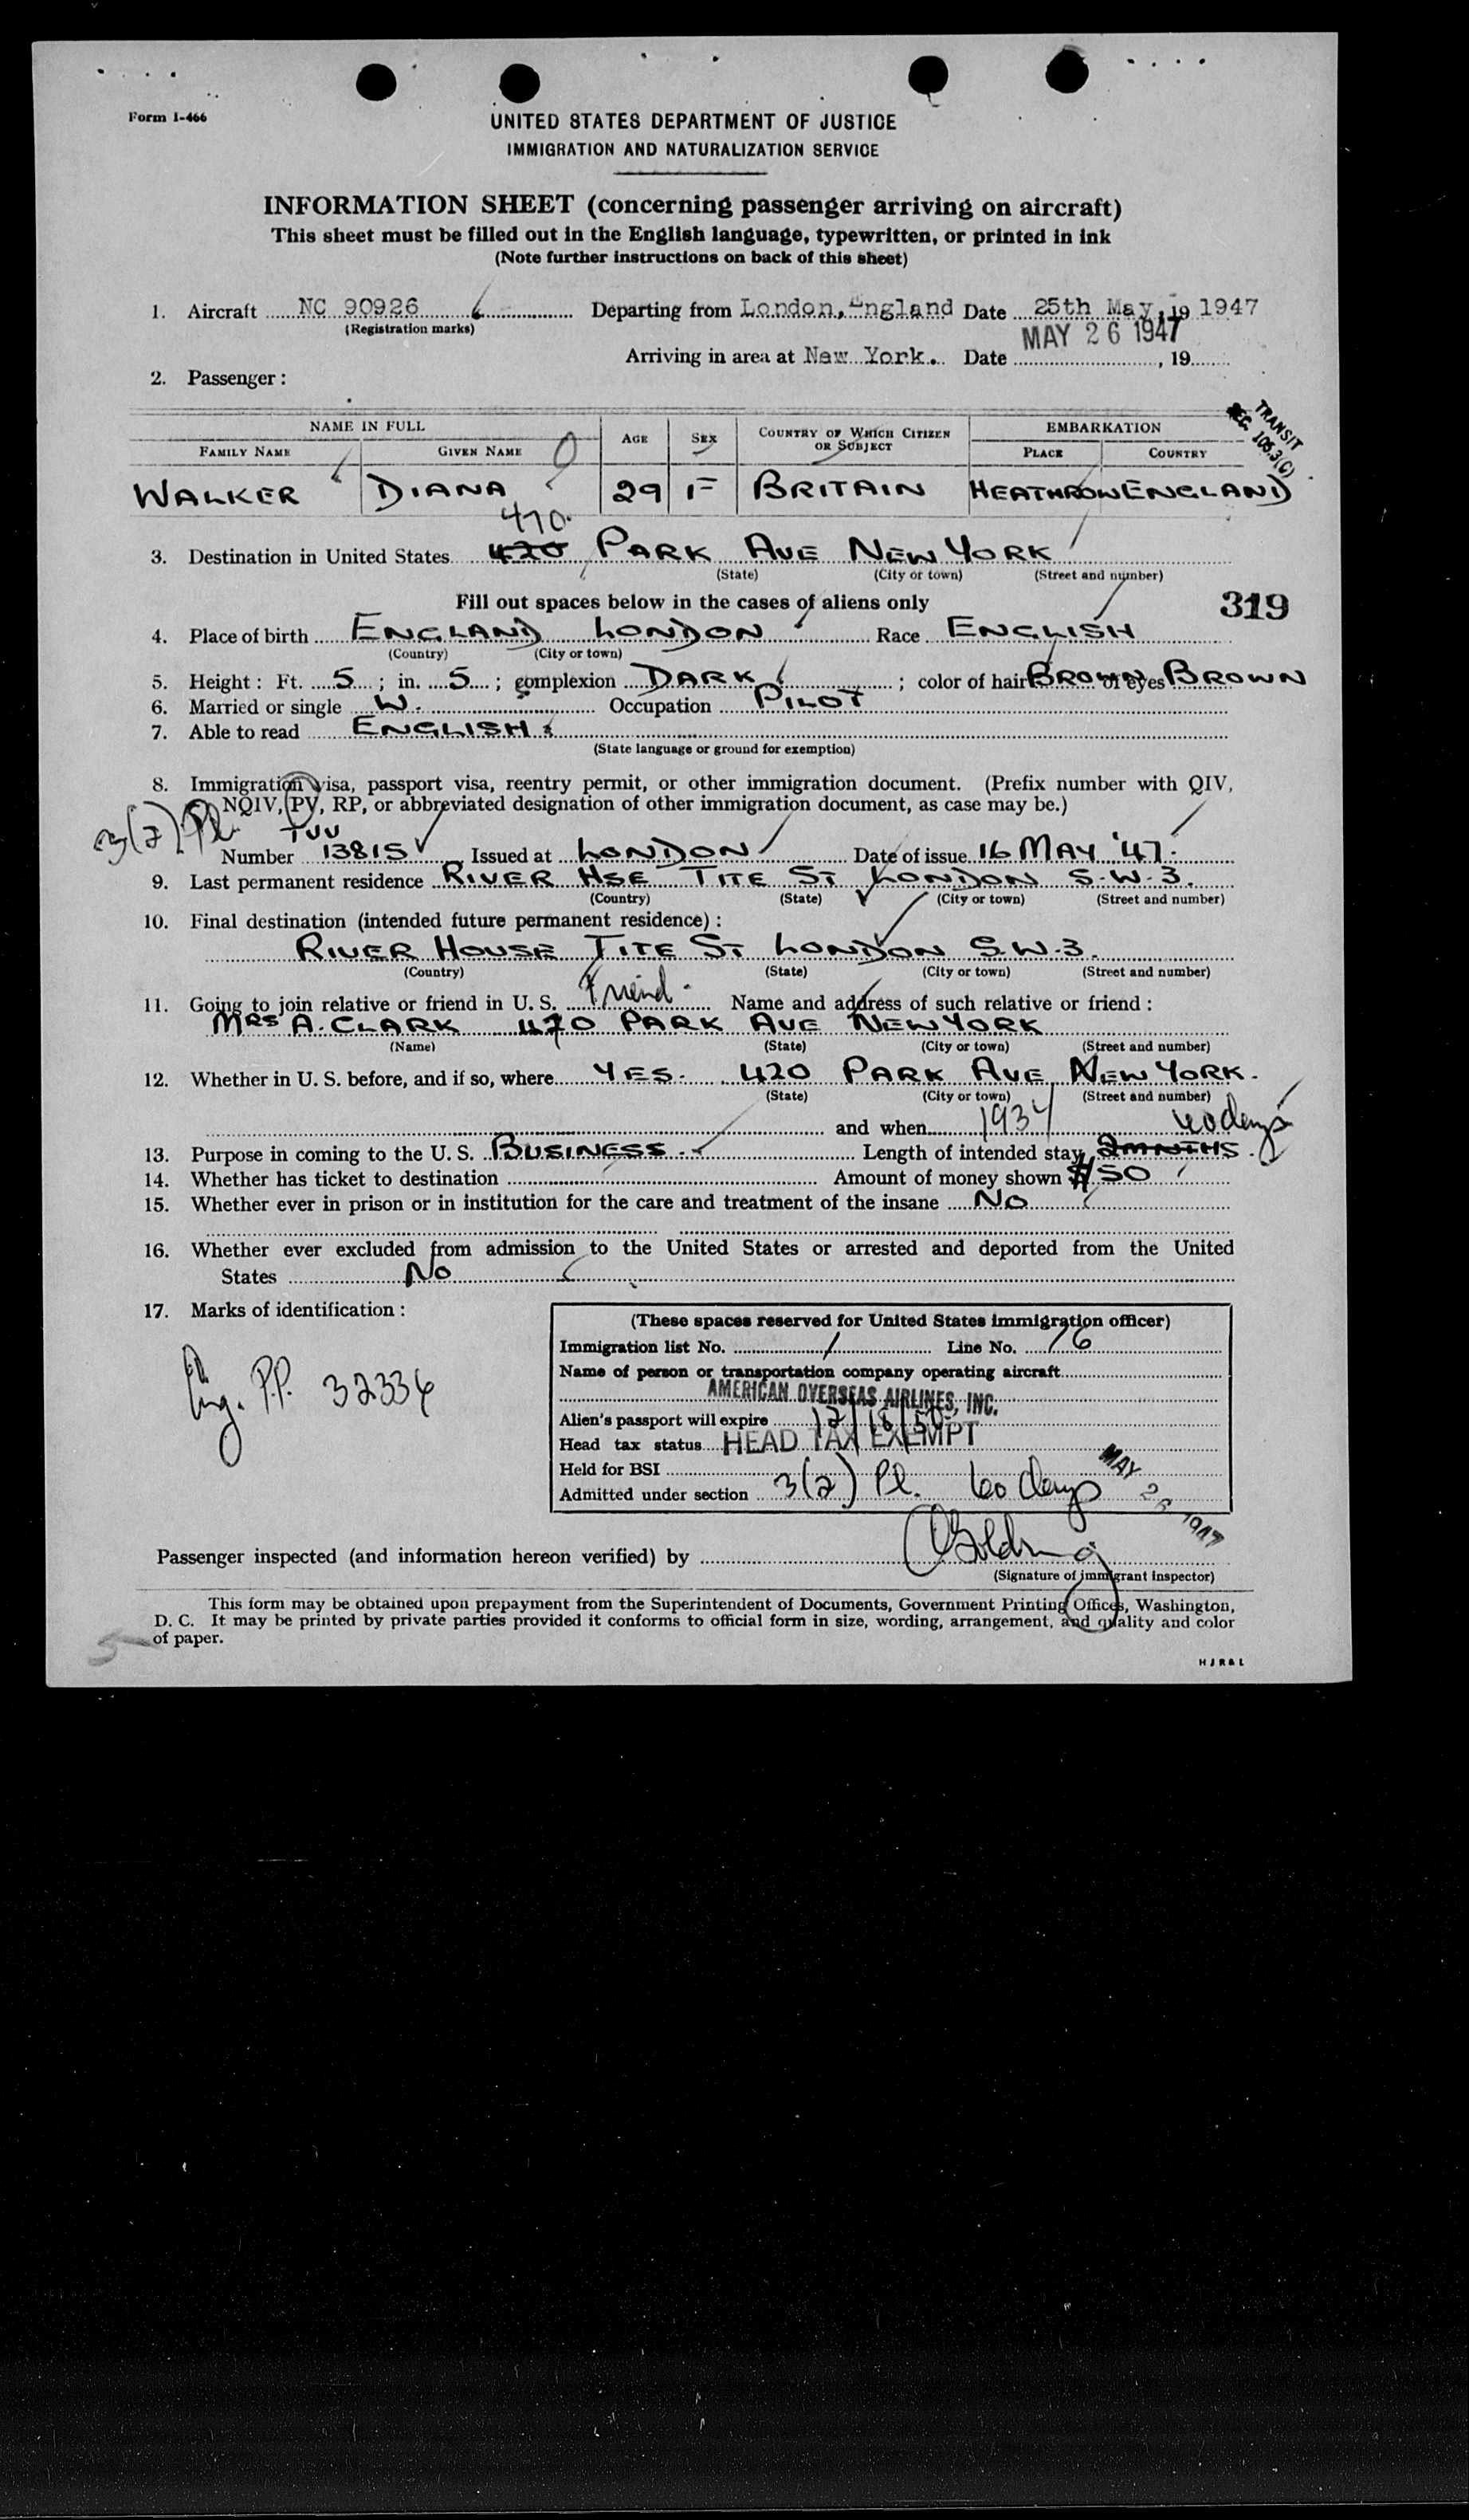 Form I-466
UNITED STATES DEPARTMENT OF JUSTICE
IMMIGRATION AND NATURALIZATION SERVICE
INFORMATION SHEET (concerning passenger arriving on aircraft)
This sheet must be filled out in the English language, typewritten, or printed in ink
(Note further instructions on back of this sheet)
1. Aircraft NC 90926 Departing from London, England Date 25th May, 19 1947
(Registration marks)
MAY 26 1947
Arriving in area at New York. Date , 19
2. Passenger:
TRANSIT
REG 105.3(C)
NAME IN FULL AGE SEX COUNTRY OF WHICH CITIZEN OR SUBJECT EMBARKATION
FAMILY NAME GIVEN NAME PLACE COUNTRY
WALKER DIANA 29 F BRITAIN HEATHROW ENGLAND
470.
3. Destination in United States 420 PARK AVE NEW YORK
(State) (City or town) (Street and number)
Fill out spaces below in the cases of aliens only 319
4. Place of birth ENGLAND LONDON Race ENGLISH
(Country) (City or town)
5. Height: Ft. 5; in. 5; complexion DARK; color of hair BROWN of eyes BROWN
6. Married or single W. Occupation PILOT
7. Able to read ENGLISH
(State language or ground for exemption)
8. Immigration visa, passport visa, reentry permit, or other immigration document. (Prefix number with QIV,
NQIV, PV, RP, or abbreviated designation of other immigration document, as case may be.)
3(2) Pl. TVV
Number 13815 Issued at LONDON Date of issue 16 MAY '47.
9. Last permanent residence RIVER HSE TITE ST LONDON S.W.3.
(Country) (State) (City or town) (Street and number)
10. Final destination (intended future permanent residence):
RIVER HOUSE TITE ST LONDON S.W.3.
(Country) (State) (City or town) (Street and number)
11. Going to join relative or friend in U. S. Friend. Name and address of such relative or friend:
MRS A. CLARK 470 PARK AVE NEW YORK
(Name) (State) (City or town) (Street and number)
12. Whether in U. S. before, and if so, where YES. 420 PARK AVE NEW YORK.
(State) (City or town) (Street and number)
and when 1934 60 days
13. Purpose in coming to the U. S. BUSINESS Length of intended stay 2 MNTHS.
14. Whether has ticket to destination Amount of money shown $50
15. Whether ever in prison or in institution for the care and treatment of the insane No
16. Whether ever excluded from admission to the United States or arrested and deported from the United
States No
17. Marks of identification:
Eng. P.P. 32334
(These spaces reserved for United States immigration officer)
Immigration list No. 1 Line No. 16
Name of person or transportation company operating aircraft
AMERICAN OVERSEAS AIRLINES, INC.
Alien's passport will expire 12/18/50
Head tax status HEAD TAX EXEMPT
Held for BSI
Admitted under section 3(2) Pl. 60 days
MAY 26 1947
Passenger inspected (and information hereon verified) by
(Signature of immigrant inspector)
This form may be obtained upon prepayment from the Superintendent of Documents, Government Printing Office, Washington,
D. C. It may be printed by private parties provided it conforms to official form in size, wording, arrangement, and quality and color
of paper.
5
HJR&L